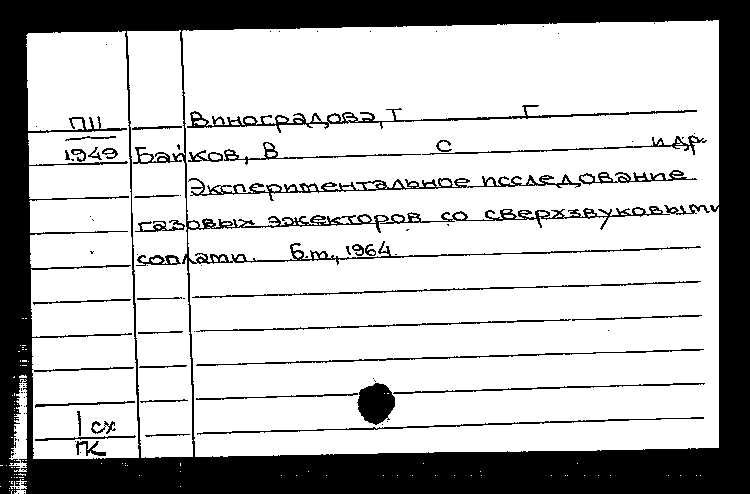 ПII Виноградова, Т Г
1949 Байков, В С и др.
Экспериментальное исследование
газовых эжекторов со сверхзвуковыми
соплами. Б.т., 1964.
1 сх
ГК